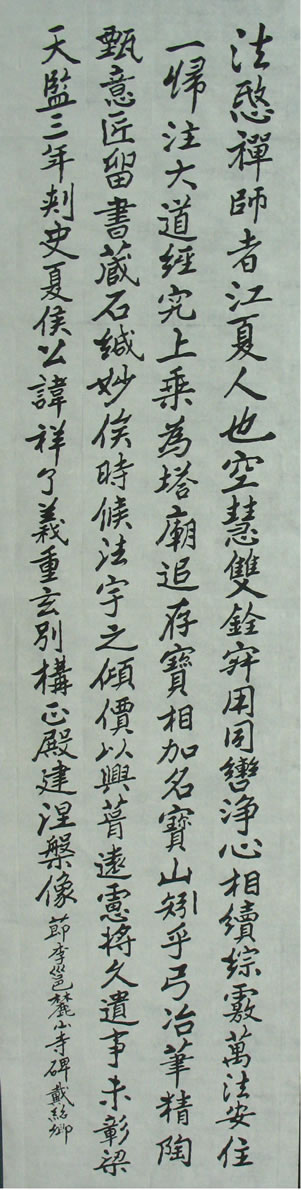 法愍禪師者江夏人也空慧雙銓寂用同轡淨心相續綜覈萬法安住
一歸注大道經究上乘為塔廟追存寶相加名寶山矧乎弓冶筆精陶
甄意匠留書藏石緘妙俟時候法宇之傾價以興葺遠憲將久遺事未彰梁
天監三年刺史夏侯公諱祥了義重玄別構正殿建涅槃像
節李邕麓山寺碑 戴紹卿